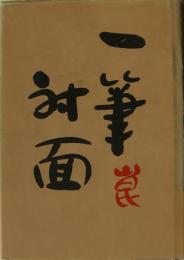 一筆
対面
崑